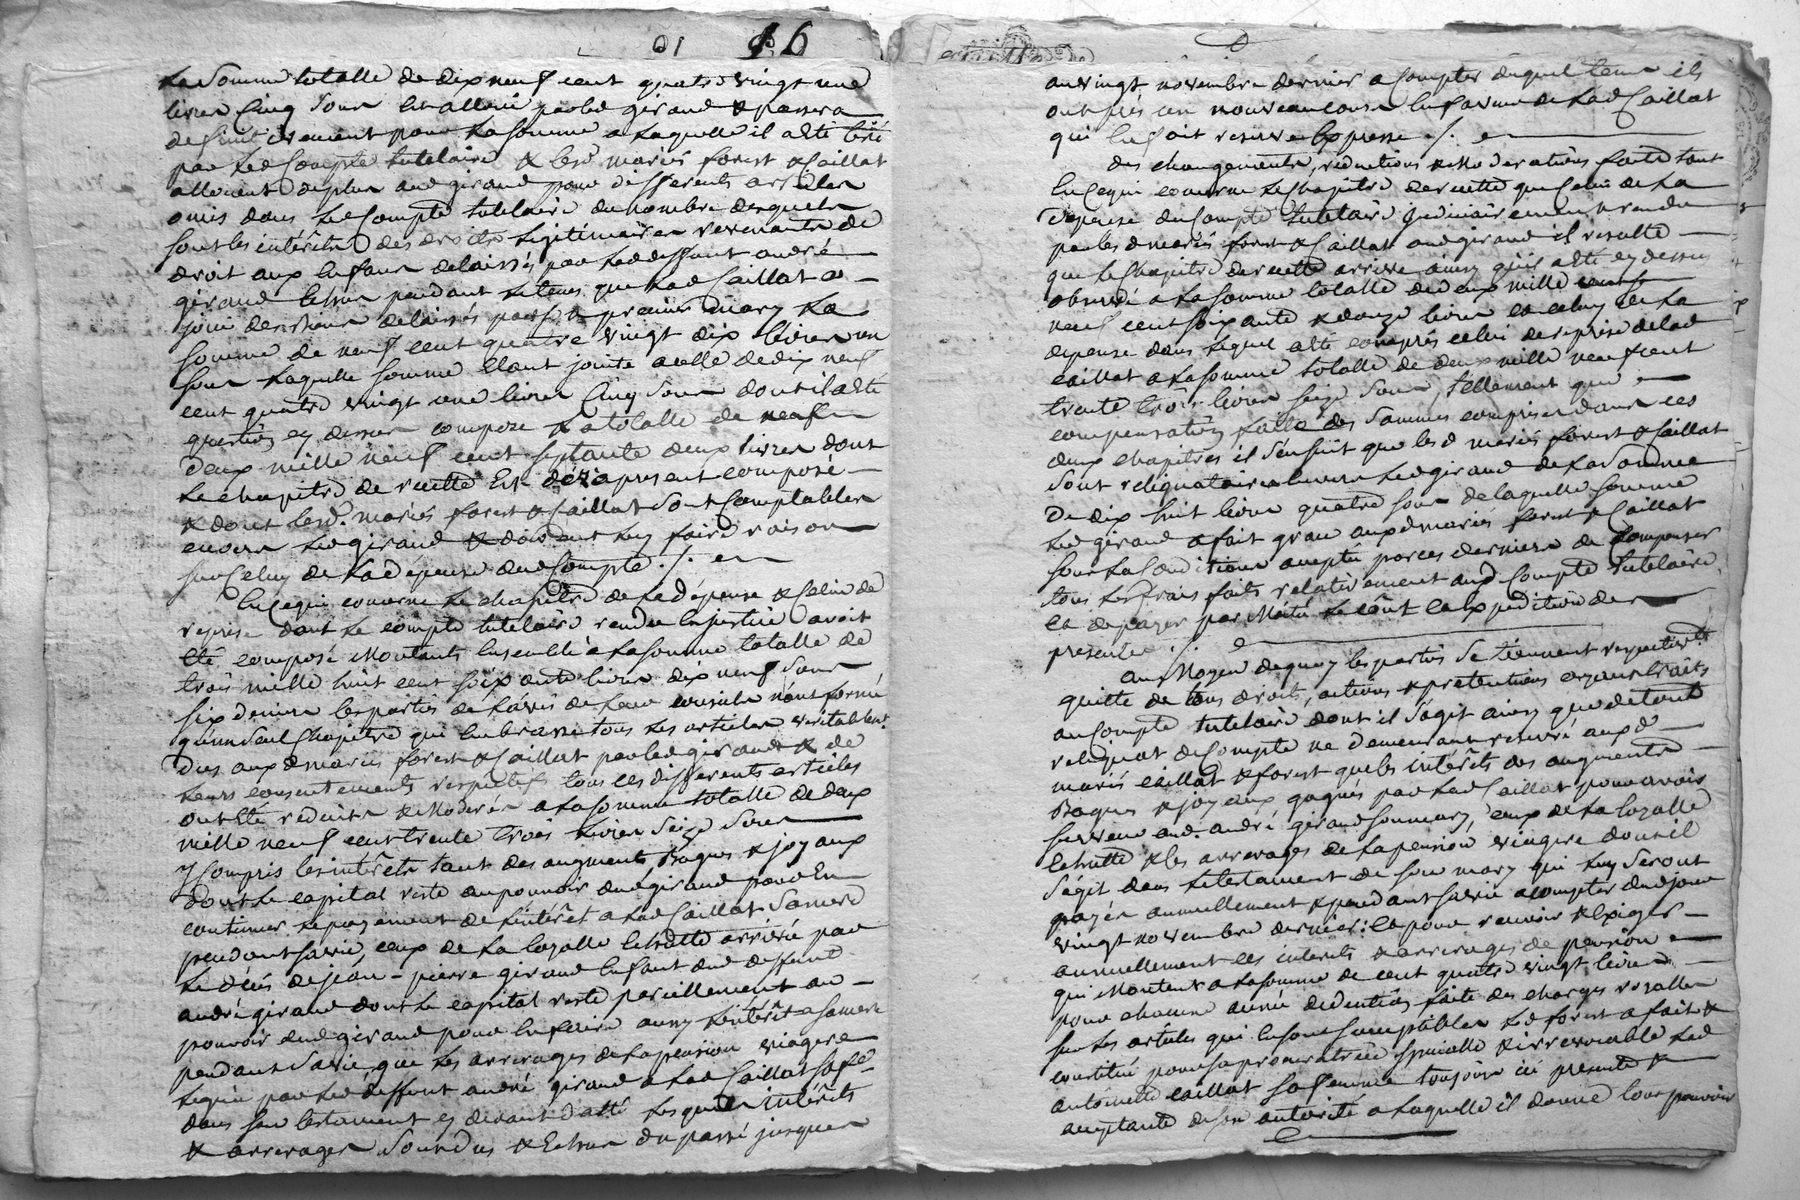 16
La somme totalle de dix neuf cent quatre vingt une
livres Cinq sous Est alloué par led girand & passera
definitivement pour la somme a laquelle il a été tiré
par led Compte tutelaire & lesd mariés forest & Caillat
allouent de plus aud girand pour differents articles
omis dans led Compte tutelaire du nombre desquels
sont les intérêts des droits legitimaires revenants de
droit aux Enfans delaissés par led deffunt andré
girand Echus pendant le tems que lad Caillat a
joui des biens delaissés par sond premier mary la
somme de neuf cent quatre vingt dix livres un
sou laquelle somme Etant jointe a celle de dix neuf
cent quatre vingt une livres Cinq sous dont il a été
question cy dessus compose la totalle de neuf
deux mille neuf cent septante deux livres dont
le chapitre de recette Est déja present composé
& dont lesd. mariés forest & Caillat sont Comptables
envers led girand & doivent luy faire raison
sur Celuy de la dépense dud Compte ./.
En Ce qui concerne le chapitre de la dépense & Celui de
reprise dont le compte tutelaire rendu En justice avoit
été composé Montants Ensemble à la somme totalle de
trois mille huit cent soixante livres dix neuf sous
six deniers les parties de l'avis de leur conseil n'ont formé
qu'un seul Chapitre qui Embrasse tous les articles veritablemt
dus auxd mariés forest & Caillat par led girand & de
leurs consentements respectifs tous ces differents articles
ont été réduits & Moderés a la somme totalle de deux
mille neuf cent trente trois livres seize sous
y Compris les intérêts tant des augments Bagues & joyaux
dont le capital reste au pouvoir dud girand pour En
continuer le payement de l'intérêt a lad Caillat sa mere
pendant sa vie, ceux de la cozalle Echutte arrivée par
le décés de jean-pierre girand Enfant dud deffunt
andré girand dont le capital reste pareillement au
pouvoir dud girand pour En faire aussy l'intérêt a sa mere
pendant sa vie, que les arrerages de la pension viagere
leguée par led deffunt andré girand a lad Caillat sa fe
dans son testament cy devant datté lesquels intérêts
& arrerages sont dus & Echus du passé jusques
au vingt novembre dernier a Compter duquel tems ils
ont pris un nouveau cours En faveur de lad Caillat
qui En fait reserve Expresse ./.
Des changements, reductions & Moderations faites tant
En Ce qui concerne le Chapitre de recette que Celui de la
depense du Compte tutelaire judiciairement rendu
par lesd mariés forest & Caillat aud girand il resulte
que le Chapitre de recette arrive ainsy qu'il a été cy dessus
observé a la somme totalle de deux mille
neuf cent soixante & douze livres et celuy de la
depense dans lequel a été compris celui de reprise de lad
caillat a la somme totalle de deux mille neuf cent
trente trois livres seize sous, tellement que
compensation faite des sommes comprises dans ces
deux chapitres il s'ensuit que lesd mariés forest & Caillat
sont reliquataires Envers led girand de la somme
De dix huit livres quatre sous de laquelle somme
led girand a fait grace auxd mariés forest & Caillat
sous la Condition acceptée par ces derniers de Compenser
tous les frais faits relativement aud Compte tutelaire
et de payer par Moitié le coût et Expedition des
presentes ./.
Au Moyen de quoy les parties se tiennent respectivemt
quitte de tous droits, actions & pretentions ayans traits
au Compte tutelaire dont il s'agit ainsy que de tout
reliquat de Compte ne demeurant reservé auxd
mariés caillat & forest que les intérêts des augments
Bagues & joyaux gagnés par lad Caillat pour avoir
survecu aud. andré girand son mary, ceux de la cozalle
Echutte & les arrerages de la pension viagere dont il
s'agit dans le testament de son mary qui luy seront
payés annuellement & pendant sa vie a compter dud jour
vingt novembre dernier: Et pour recevoir & Exiger
annuellement ces interets & arrerages de pension
qui Montent a la somme de cent quatre vingt livres
pour chacune année deduction faite des charges royalles
sur les articles qui En sont susceptibles led forest a fait &
constitué pour sa procuratrice speciale & irrevocable lad
antoinette caillat sa femme toujours ici presente &
acceptante de son autorité a laquelle il donne tous pouvoir